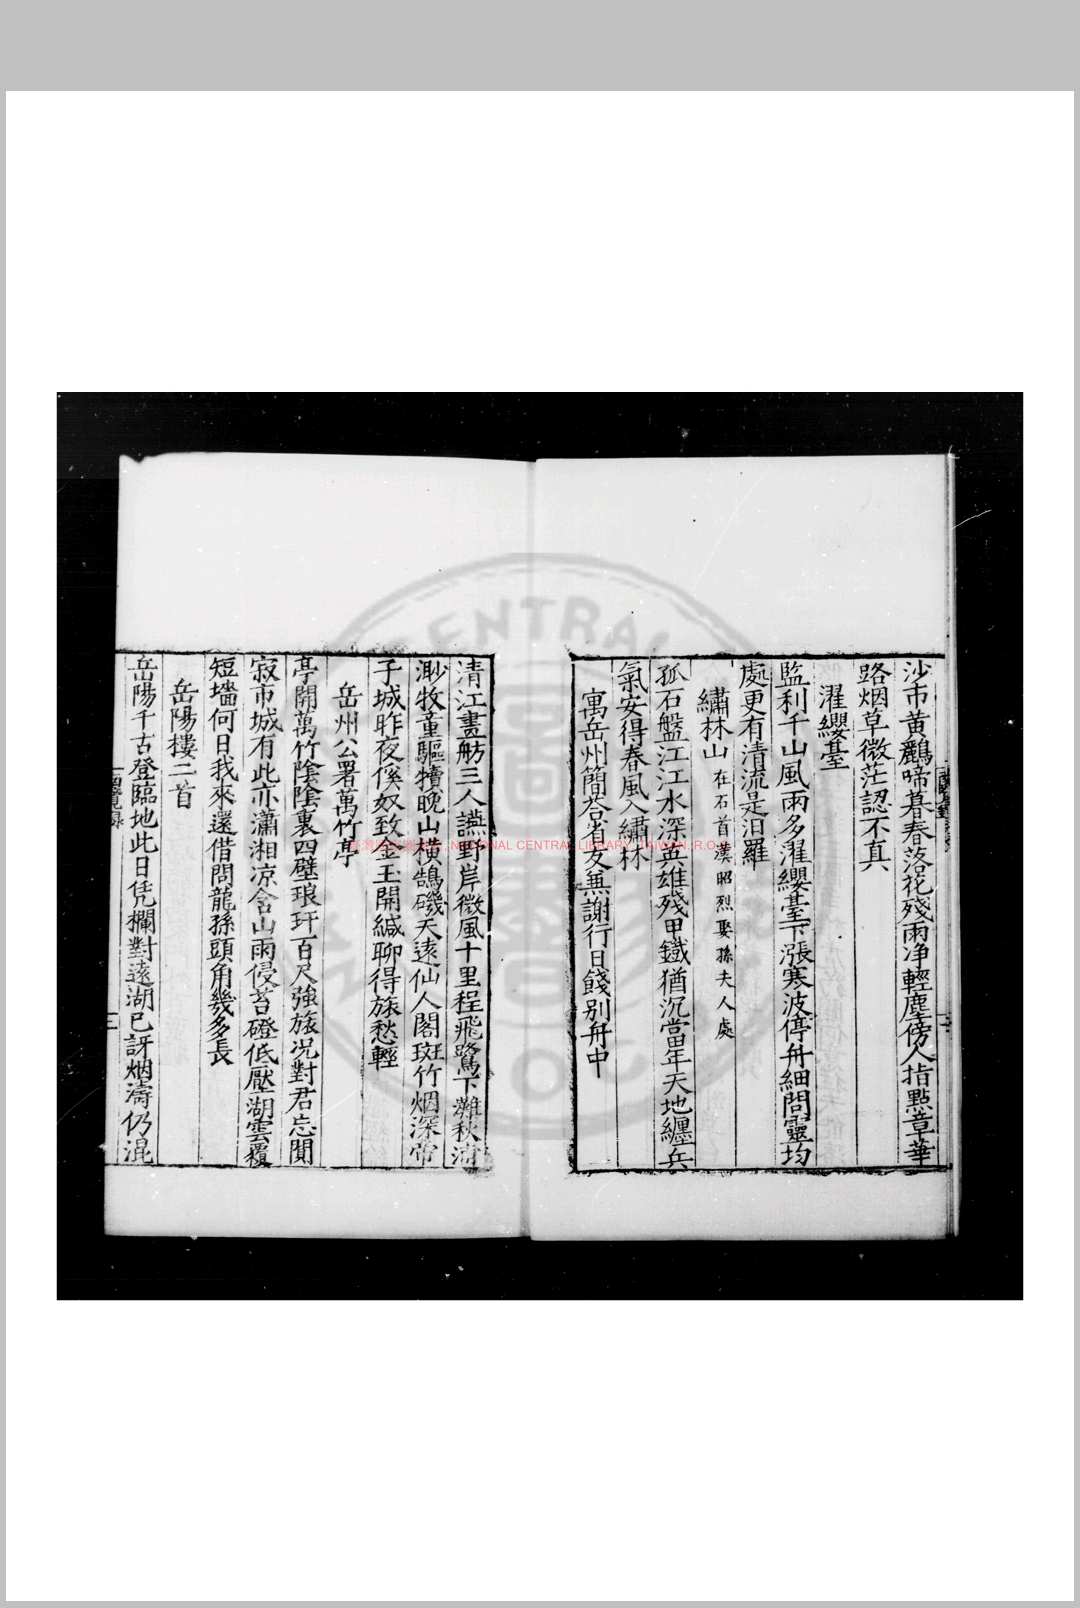 沙市黃鸝啼暮春落花殘雨净輕塵傍人指點章華
路烟草微茫認不真
濯纓臺
監利千山風雨多濯纓臺下漲寒波停舟細問靈均
處更有清流是汨羅
繡林山在石首漢昭烈娶孫夫人處
孤石盤江江水深英雄殘甲鐵猶沉當年天地纏兵
氣安得春風入繡林
寓岳州簡荅省友兼謝行日餞别舟中
清江畫舫三人讌野岸微風十里程飛鷺下灘秋
渺牧童驅犢晚山橫鵠磯天遠仙人閣斑竹烟深帝
子城昨夜傒奴致金玉開緘聊得旅愁輕
岳州公署萬竹亭
亭開萬竹陰陰裏四壁琅玕百尺強旅况對君忘聞
寂市城有此亦瀟湘凉含山雨侵苔磴低壓湖雲覆
短墻何日我來還借問龍孫頭角幾多長
岳陽樓二首
岳陽千古登臨地此日凭欄對遠湖已訝烟濤仍混
NATIONAL CENTRAL LIBRARY, TAIWAN, R.O.C